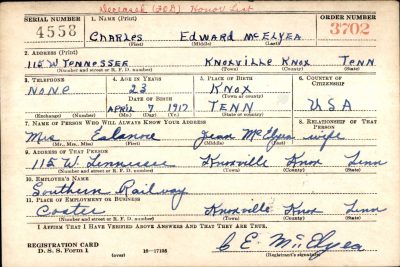 Deceased (FOD) Honor List
SERIAL NUMBER 1. NAME (Print) ORDER NUMBER
4558 Charles Edward McElyea 3702
(First) (Middle) (Last)
2. ADDRESS (Print)
115 W Tennessee Knoxville Knox Tenn
(Number and street or R. F. D. number) (Town) (County) (State)
3. TELEPHONE 4. AGE IN YEARS 5. PLACE OF BIRTH 6. COUNTRY OF CITIZENSHIP
None 23 Knox
DATE OF BIRTH (Town or county)
April 7 1917 Tenn USA
(Exchange) (Number) (Mo.) (Day) (Yr.) (State or country)
7. NAME OF PERSON WHO WILL ALWAYS KNOW YOUR ADDRESS 8. RELATIONSHIP OF THAT PERSON
Mrs Jean McElyea wife
(Mr., Mrs., Miss) (First) (Middle) (Last)
9. ADDRESS OF THAT PERSON
115 W. Tennessee Knoxville Knox Tenn
(Number and street or R. F. D. number) (Town) (County) (State)
10. EMPLOYER'S NAME
Southern Railway
11. PLACE OF EMPLOYMENT OR BUSINESS
Coster Knoxville Knox Tenn
(Number and street or R. F. D. number) (Town) (County) (State)
I AFFIRM THAT I HAVE VERIFIED ABOVE ANSWERS AND THAT THEY ARE TRUE.
REGISTRATION CARD
D. S. S. Form 1 (over) 16—17105 C E. McElyea
(Registrant's signature)